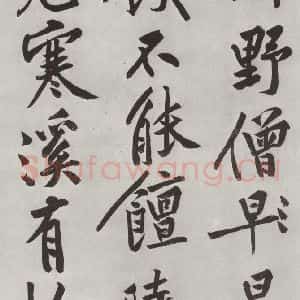 野僧早
不能饘
寒溪有
Shufawang.CN